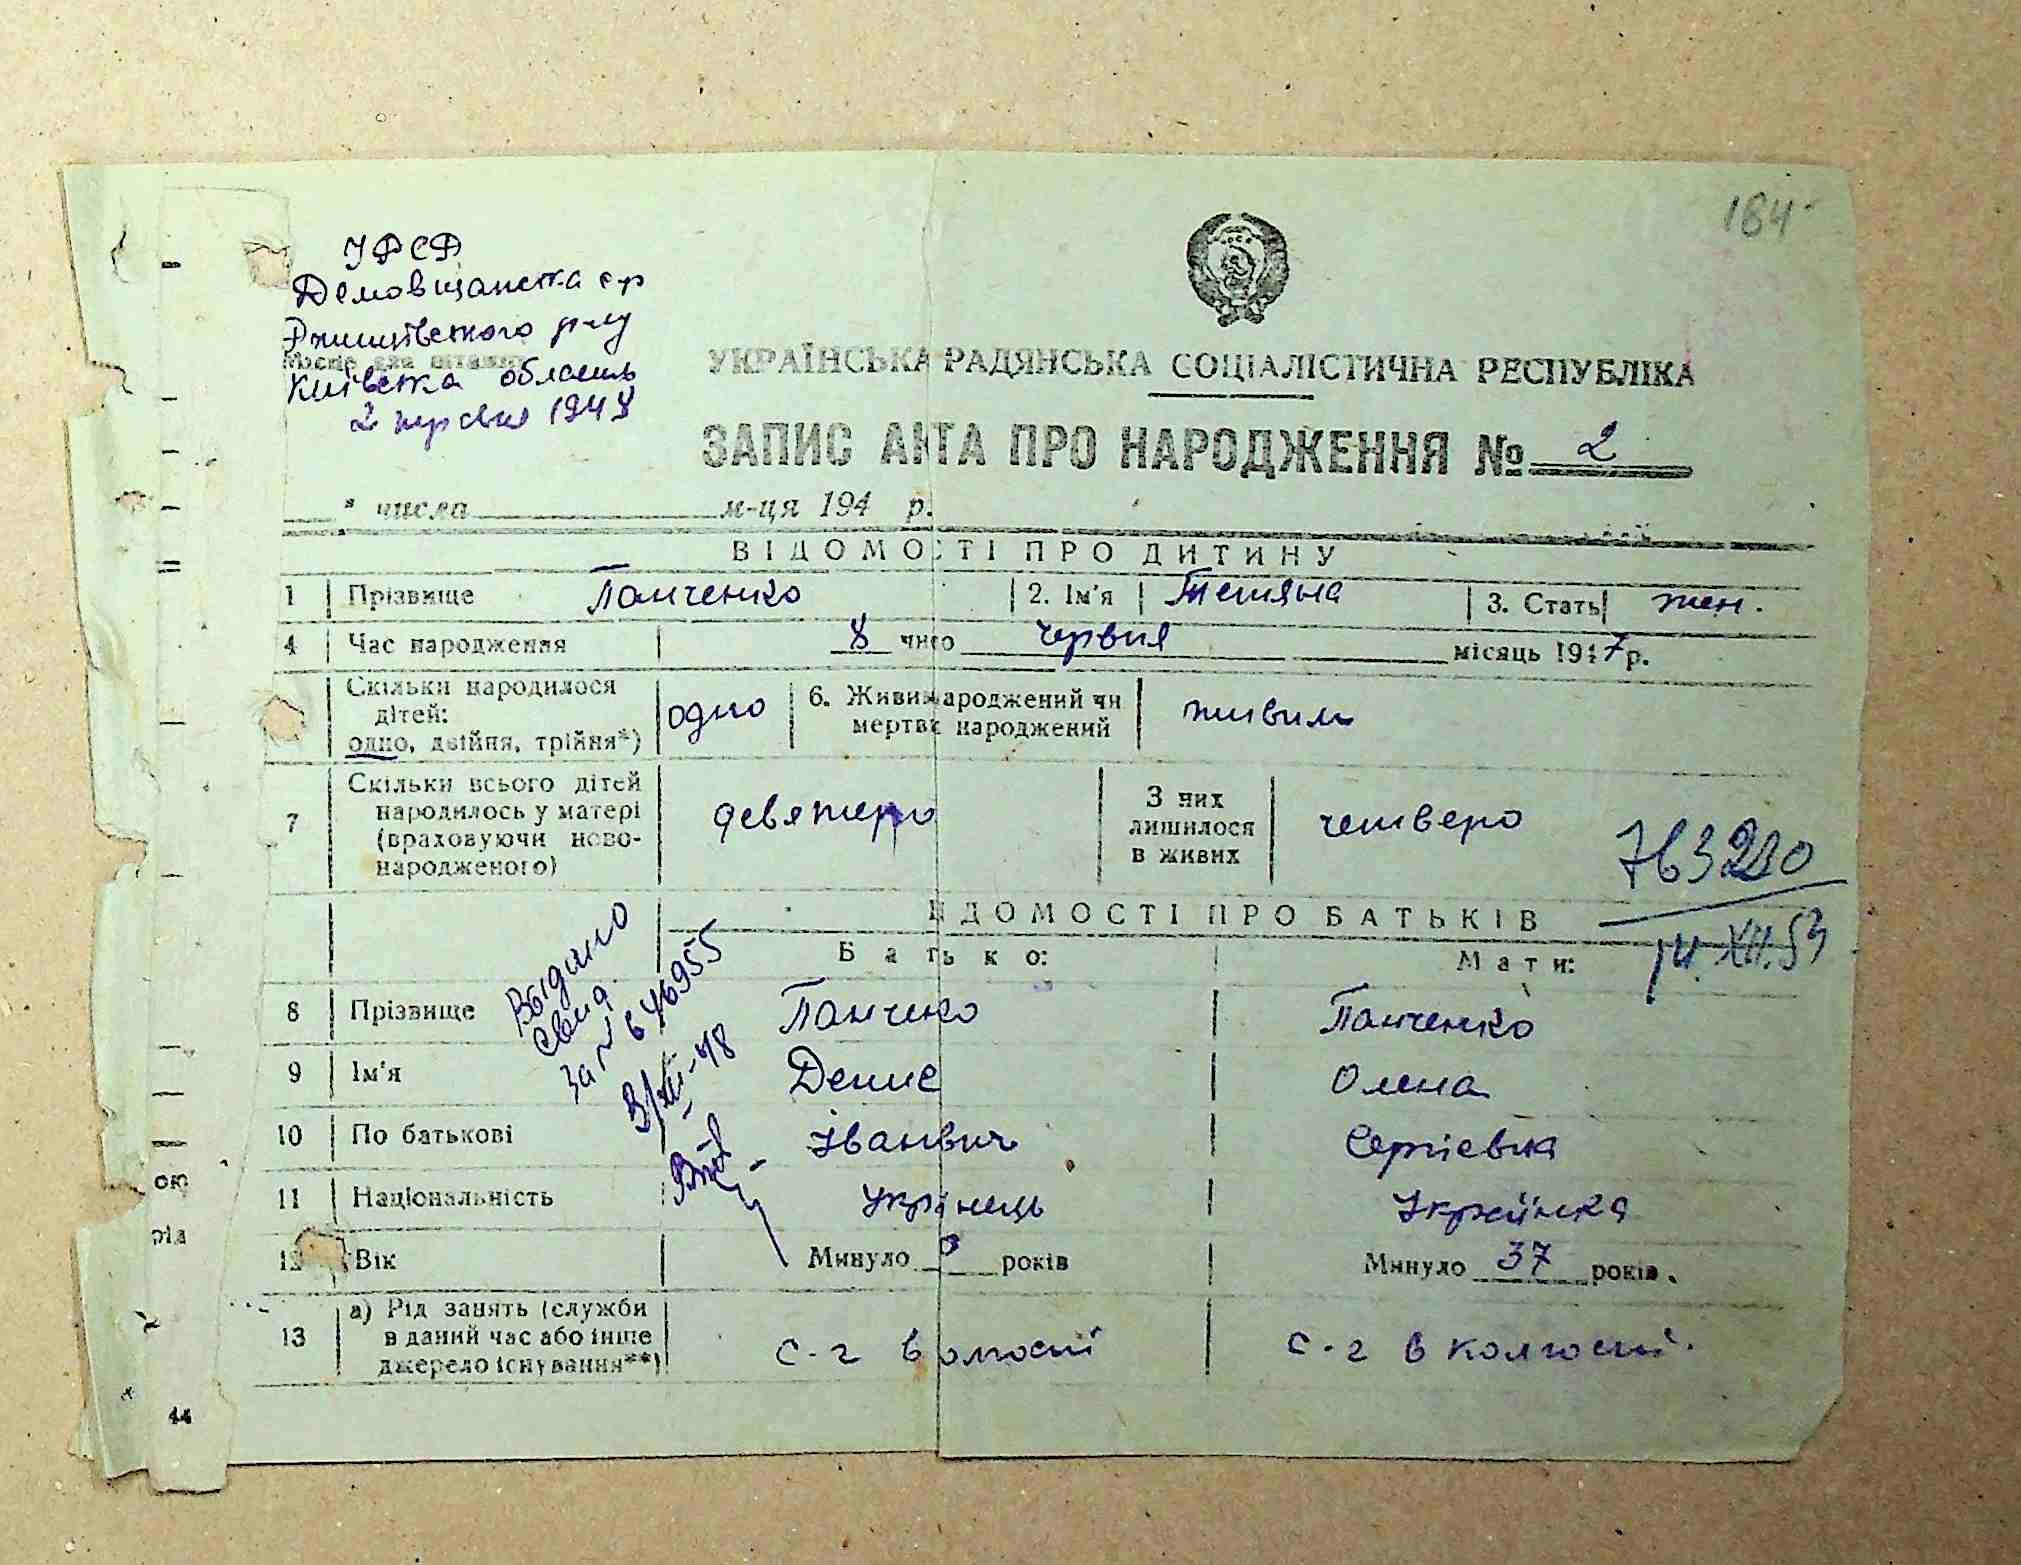 184
УРСР
Демовщанська с-р
Ржищівського р-ну
Місце для штампу
Київська область
2 червня 1948
УКРАЇНСЬКА РАДЯНСЬКА СОЦІАЛІСТИЧНА РЕСПУБЛІКА
ЗАПИС АКТА ПРО НАРОДЖЕННЯ № 2
" числа м-ця 194 р.
ВІДОМОСТІ ПРО ДИТИНУ
1 Прізвище Панченко 2. Ім'я Тетяна 3. Стать жен.
4 Час народження 8 число червня місяць 1947 р.
Скільки народилося
дітей:
одно, двійня, трійня*) одно 6. Живим народжений чи
мертво народжений живим
7 Скільки всього дітей
народилось у матері
(враховуючи ново-
народженого) девятеро
З них
лишилося
в живих четверо
763220
14.XII.53
ВІДОМОСТІ ПРО БАТЬКІВ
Батько: Мати:
Видано
свид.
за № 646955
3/XII-48
8 Прізвище Панченко Панченко
9 Ім'я Денис Олена
10 По батькові Іванвич Сергіевна
11 Національність Укрінець Українка
12 Вік Минуло років Минуло 37 років.
13 а) Рід занять (служби
в даний час або інше
джерело існування**) с-г в олгоспі с-г в колгоспі.
ою
рід
44